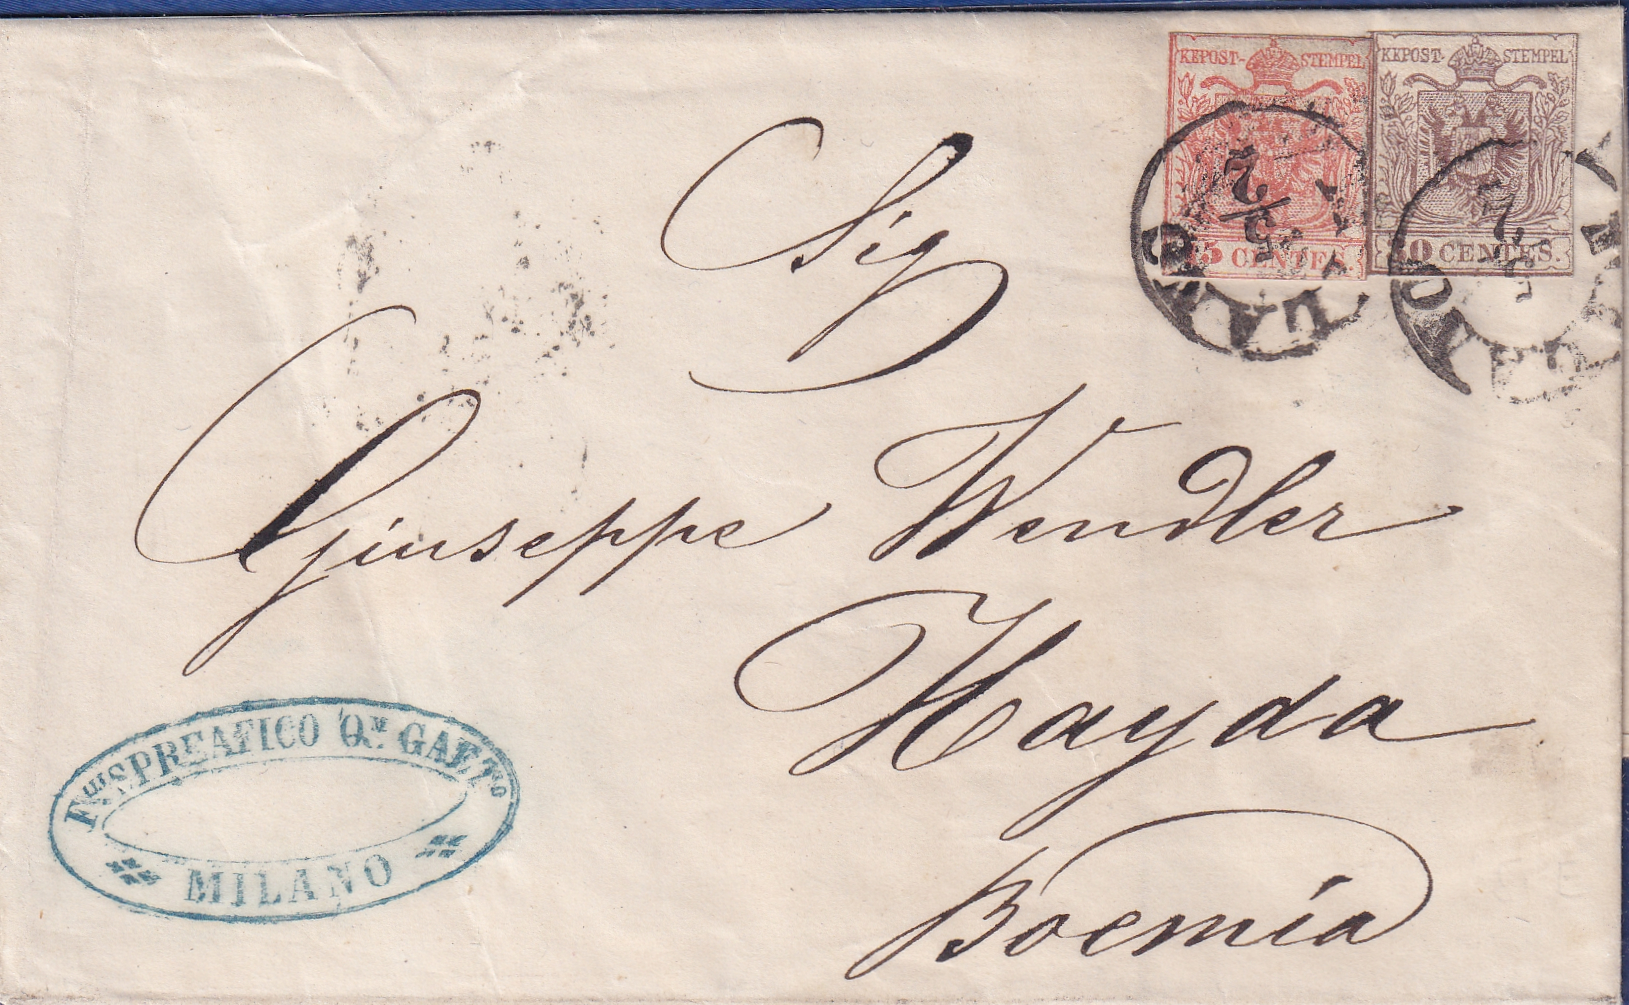 KKPOST-STEMPEL
5 CENTES.
KKPOST-STEMPEL
0 CENTES.
Sig
Giuseppe Wendler
Hayda
Boemia
Flli SPREAFICO Qm. GAETo
MILANO